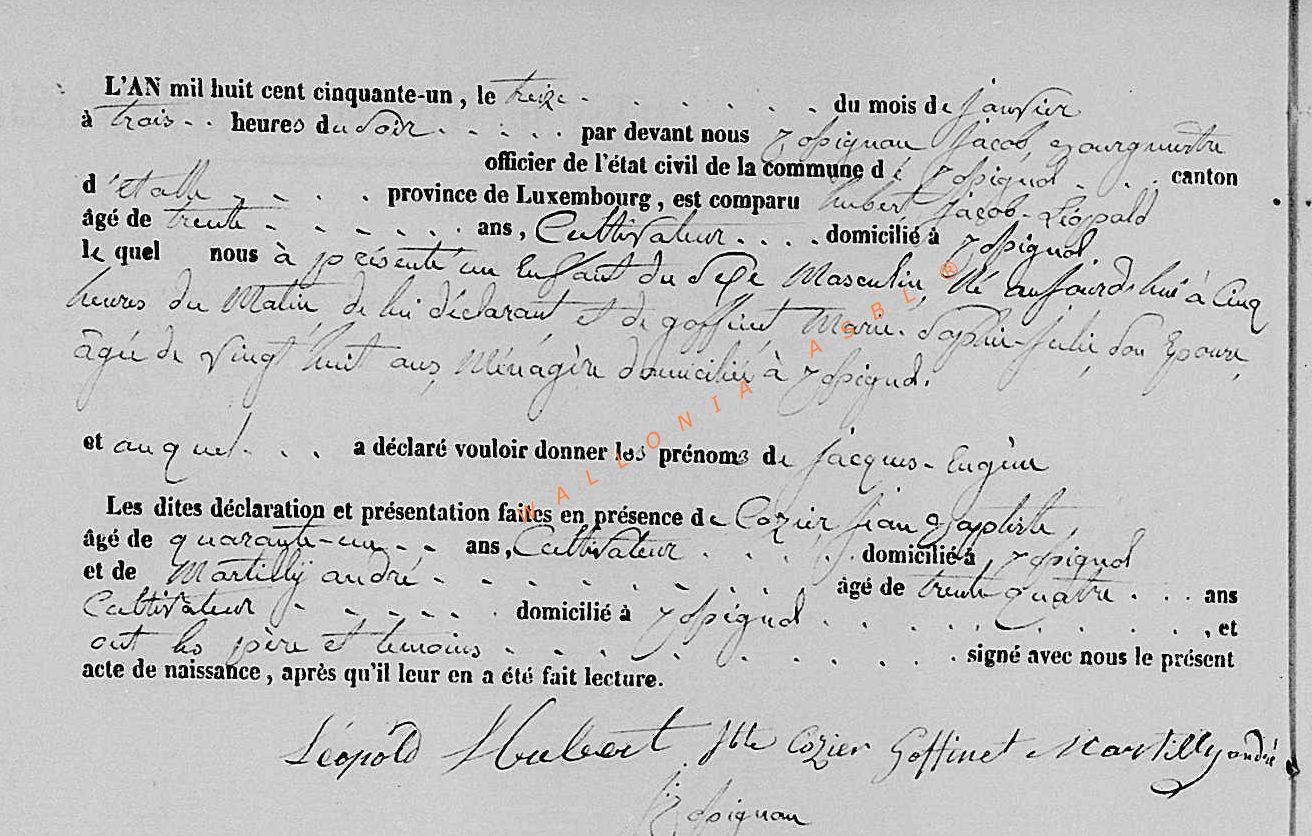 L'AN mil huit cent cinquante-un, le treize . . . . . . du mois de janvier
à trois . . heures du Soir . . . . . par devant nous Rossignon Jacob, Bourgmestre
officier de l'état civil de la commune de Rossignol . . . canton
d'étalle . . . . province de Luxembourg, est comparu hubert Jacob-Léopold
âgé de trente . . . . . . . ans, Cultivateur . . . . domicilié à Rossignol,
le quel nous à présenté un Enfant du Sexe Masculin, Né aujourd'hui à Cinq
heures du Matin de lui déclarant et de goffinet Marie-Sophie-Julie, son Epouse,
âgée de vingt huit ans, Ménagère domiciliée à Rossignol.
et auquel . . . a déclaré vouloir donner les prénoms de Jacques-Eugène
Les dites déclaration et présentation faites en présence de Cozier jean Baptiste,
âgé de quarante-un . . ans, Cultivateur . . . . . domicilié à Rossignol
et de Martilly andré . . . . . . . . . âgé de trente quatre . . . ans
Cultivateur . . . . . . domicilié à Rossignol . . . . . . . . . , et
ont les père et temoins . . . . . . . . . . signé avec nous le présent
acte de naissance, après qu'il leur en a été fait lecture.
Léopold Hubert Jbte Cozier Goffinet Martilly andré
Rossignon
WALLONIA ASBL ®